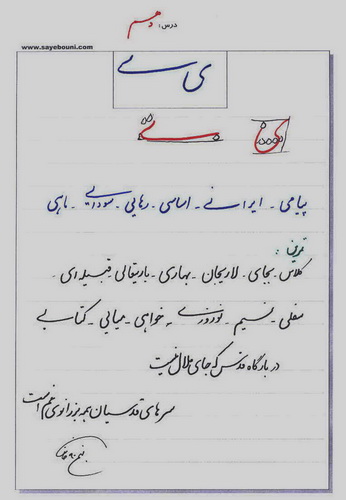 درس: دهم
www.sayebouni.com
ی ے
ی ے
پیامی - ایرانی - اساسی - رهایی - سودایی - ماهی
تمرین:
کلاس - بجای - لاریجان - بهاری - باریتعالی - قبیله‌ای -
سفلی - نسیم - نوروزی - خواهی - میایی - کتابی
در بارگاه قدس که جای ملال نیست
سرهای قدسیان همه بر زانوی غم است